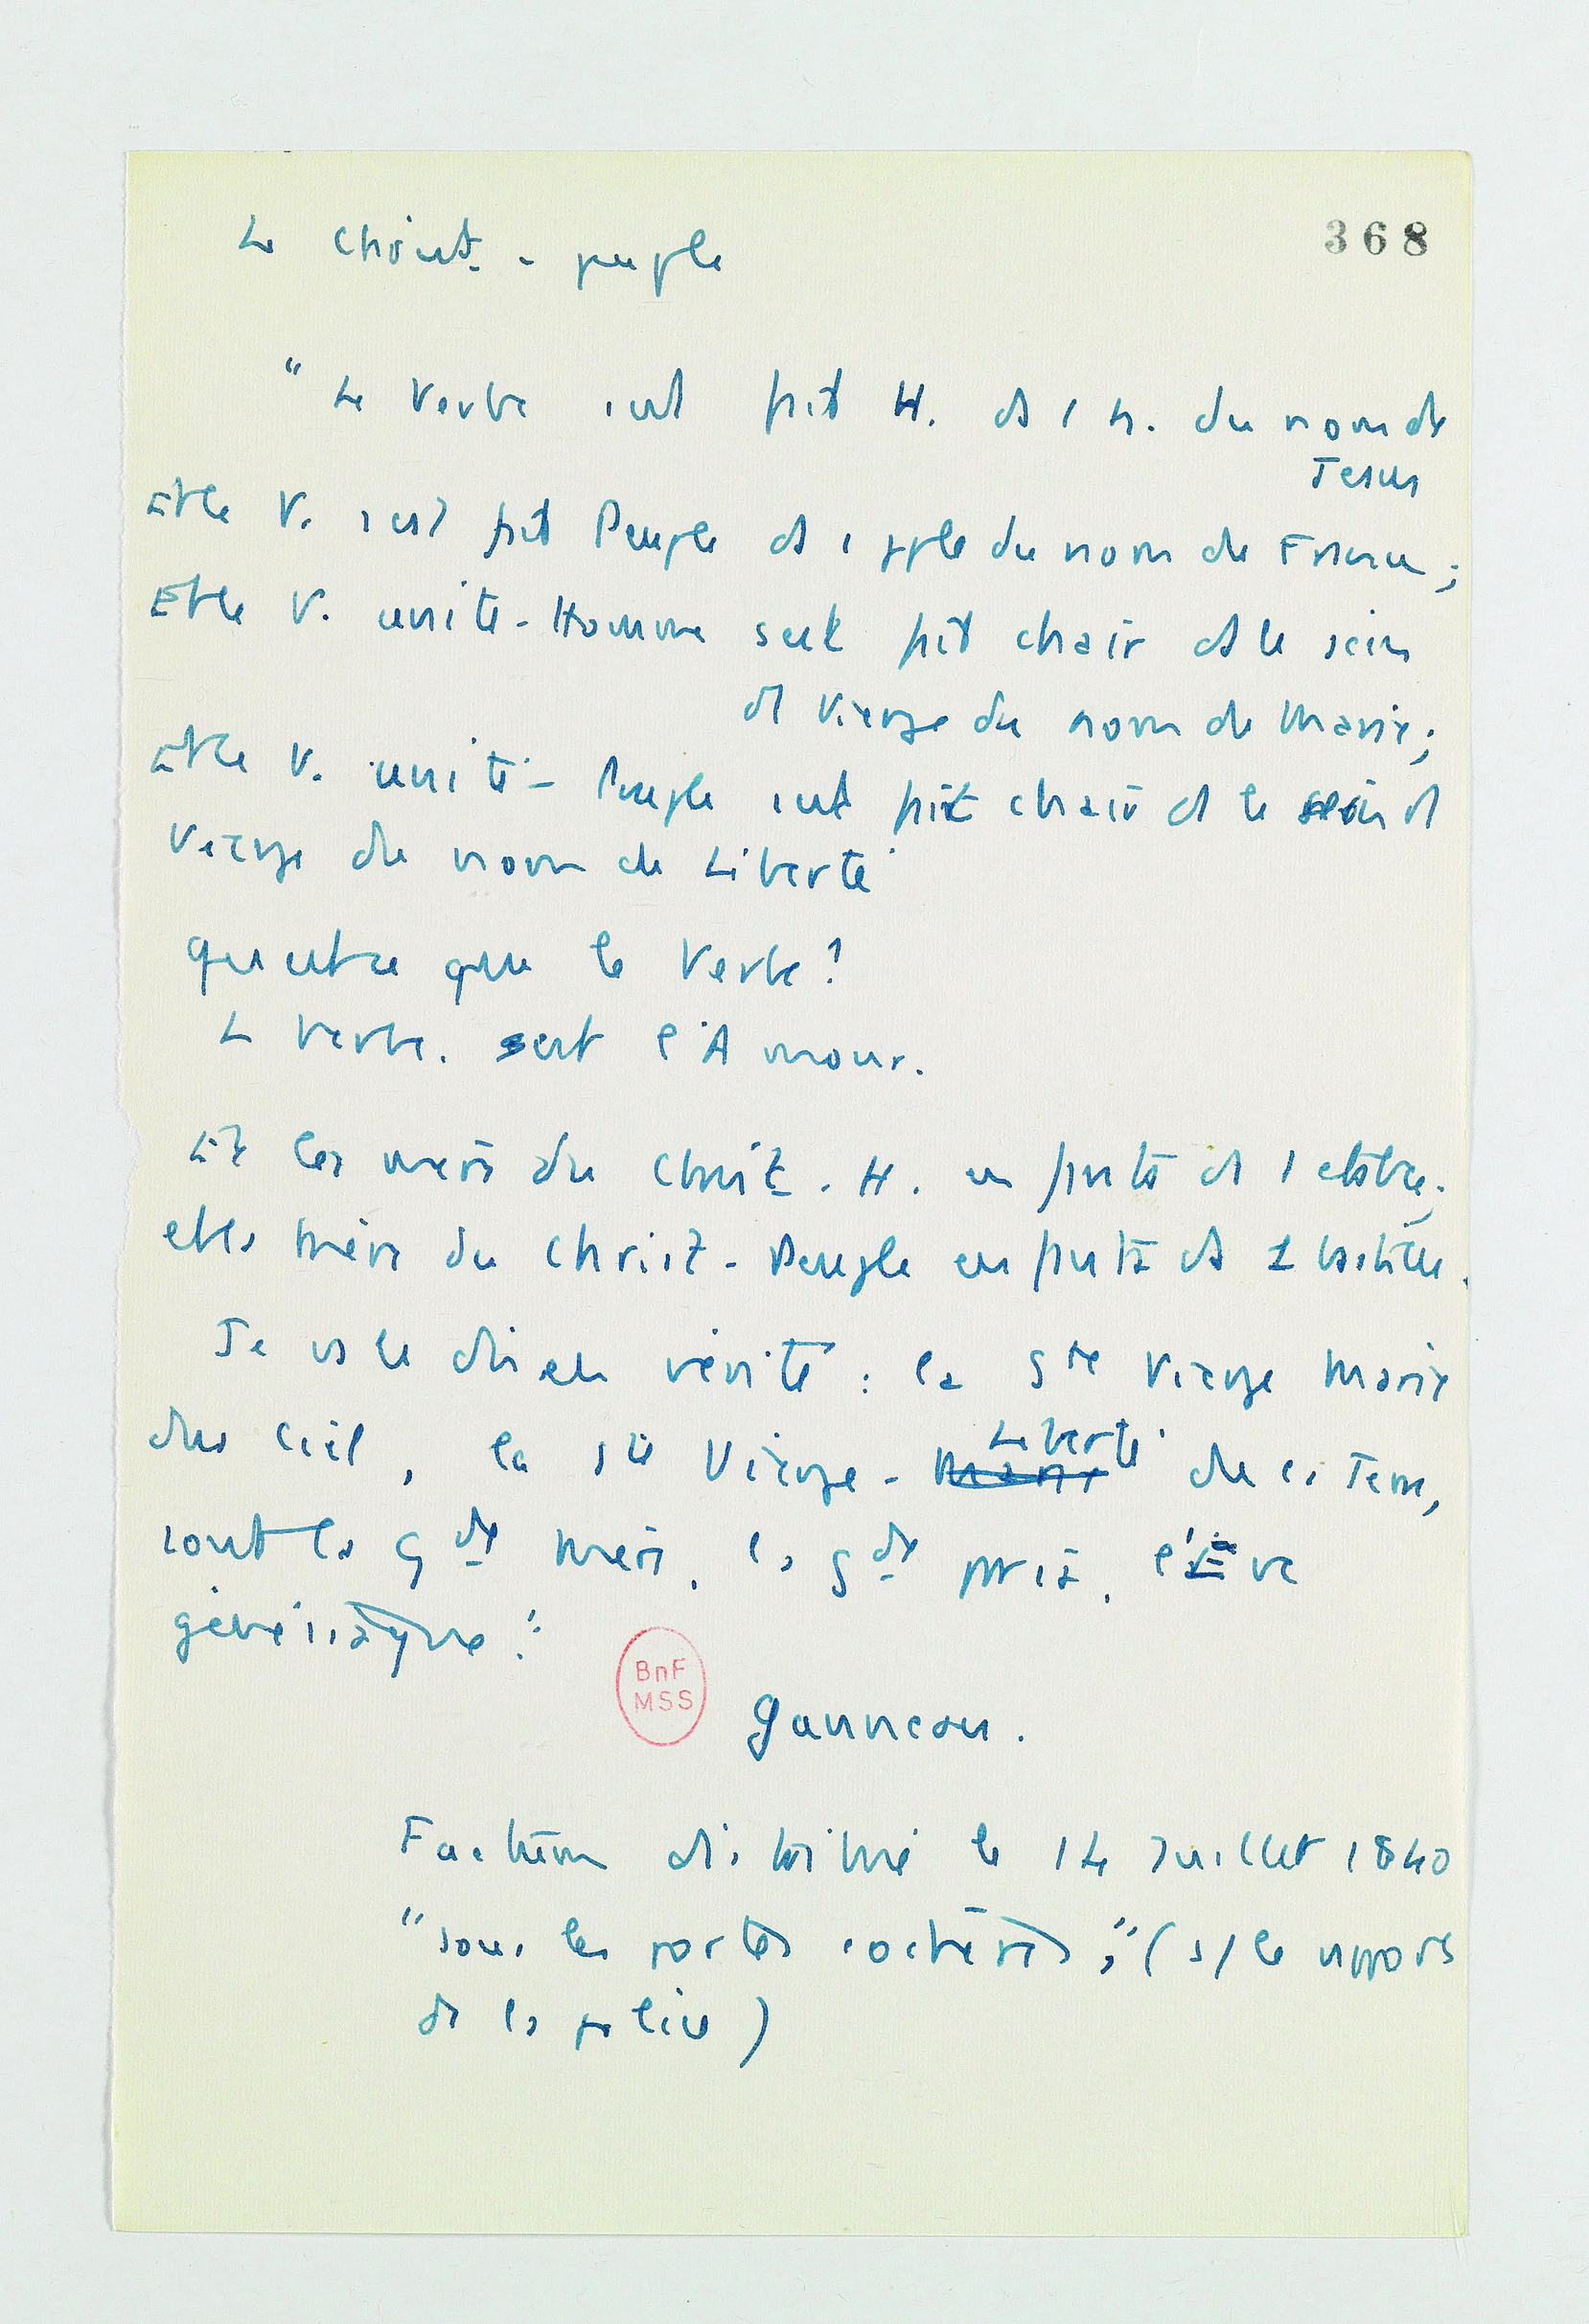 Le Christ - peuple
368
" Le Verbe s'est fait H. ds 1 h. du nom de
Jesus
Et le V. s'est fait Peuple ds 1 pple du nom de France ;
Et le V. unité-Homme s'est fait chair ds le sein
d1 Vierge du nom de Marie ;
Et le V. unité - Peuple s'est fait chair ds le sein d1
Vierge du nom de Liberté
Qu'est-ce que le Verbe ?
Le Verbe. c'est l'Amour.
Et la mère du Christ - H. enfanta ds 1 étable ;
et la mère du Christ - Peuple enfanta ds 1 bastille.
Je vs le dis en vérité : la Ste Vierge Marie
du Ciel, la Ste Vierge - Liberté de la Terre,
sont la gde mère, la gde , l'Eve
génésiaque."
BnF
MSS
Ganneau.
Factum distribué le 14 Juillet 1840
"sous les portes cochères," (s/ le rapport
de la police)